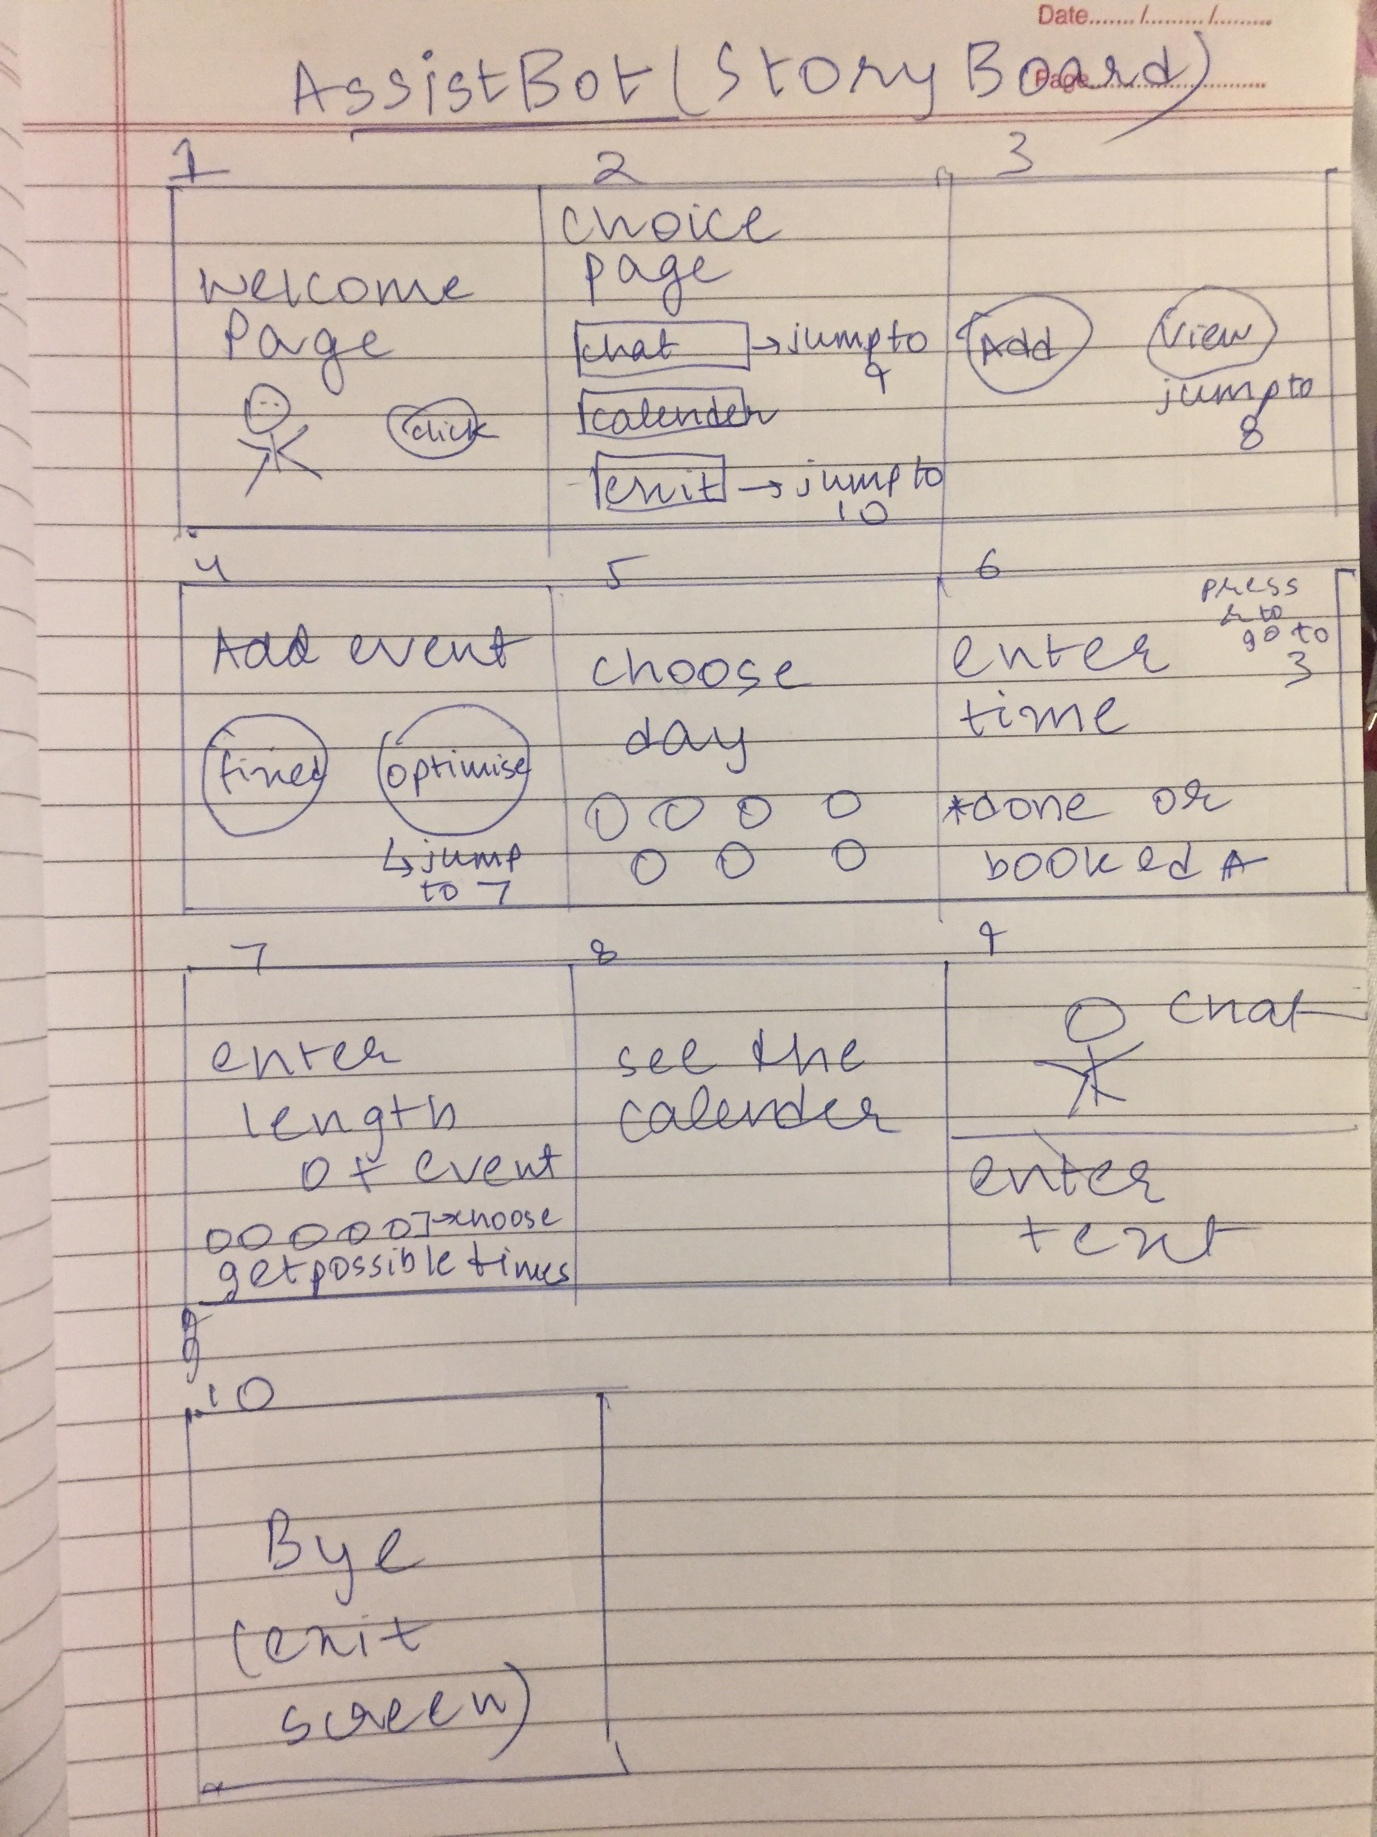 Date......./........./.........
Page..............................
AssistBot (Story Board)
1
Welcome
Page
click
2
choice
page
chat → jump to
9
calender
exit → jump to
10
3
Add
View
jump to
8
4
Add event
fixed
optimise
↳ jump
to 7
5
choose
day
6
press
to
go to
3
enter
time
*done or
booked *
7
enter
length
of event
00000] → choose
get possible times
8
see the
calender
9
chat
enter
text
10
Bye
(exit
screen)